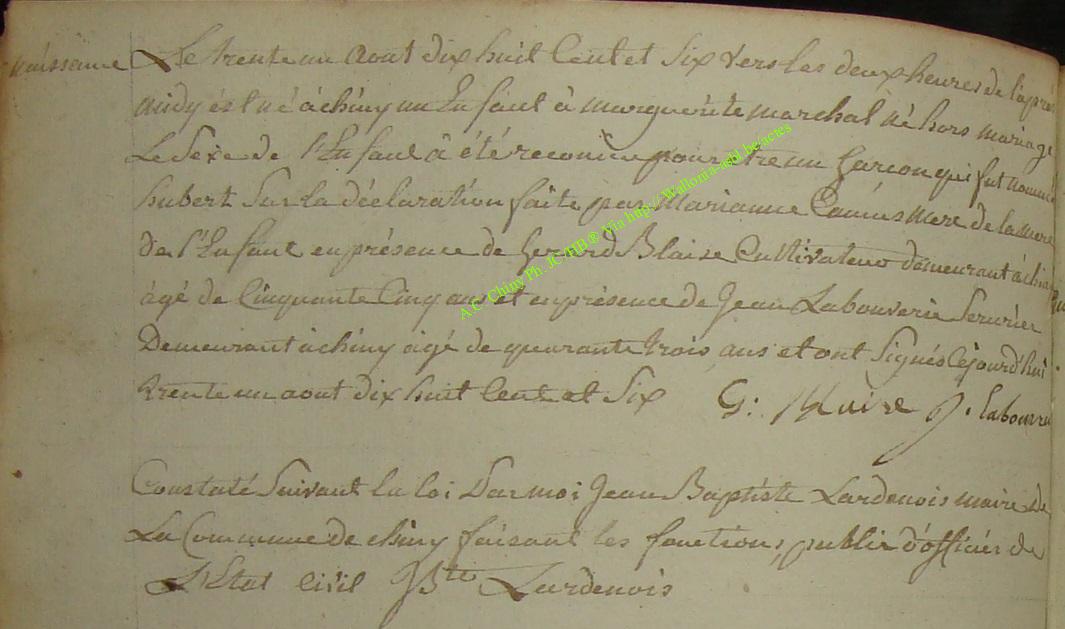 naissance Le trente un aout dix huit Cent et Six vers les deux heures de l'après
midy ést né à chiny un Enfant à marguerite marchal né hors mariage
Le Sexe de l'Enfant à été reconnu pour etre un Garcon qui fut nommé
hubert Sur la déclaration faite par Marianne mere de la mere
de l'Enfant en présence de Gerard Blaise Cultivateur demeurant à chiny
âgé de Cinquante Cinq ans et en présence de Jean Labouverie Serurier
Demeurant à chiny âgé de quarante trois ans et ont Signés Cejourd'hui
trente un aout dix huit Cent et Six G: Blaise J. labouve
Constaté Suivant la loi Par moi Jean Baptiste Lardenois maire de
La Commune de chiny faisant les fonctions public d'officier de
L'Etat Civil JBte Lardenois
A.C. Chiny Ph. JC/HB® Via http://Wallonia-asbl.be/actes